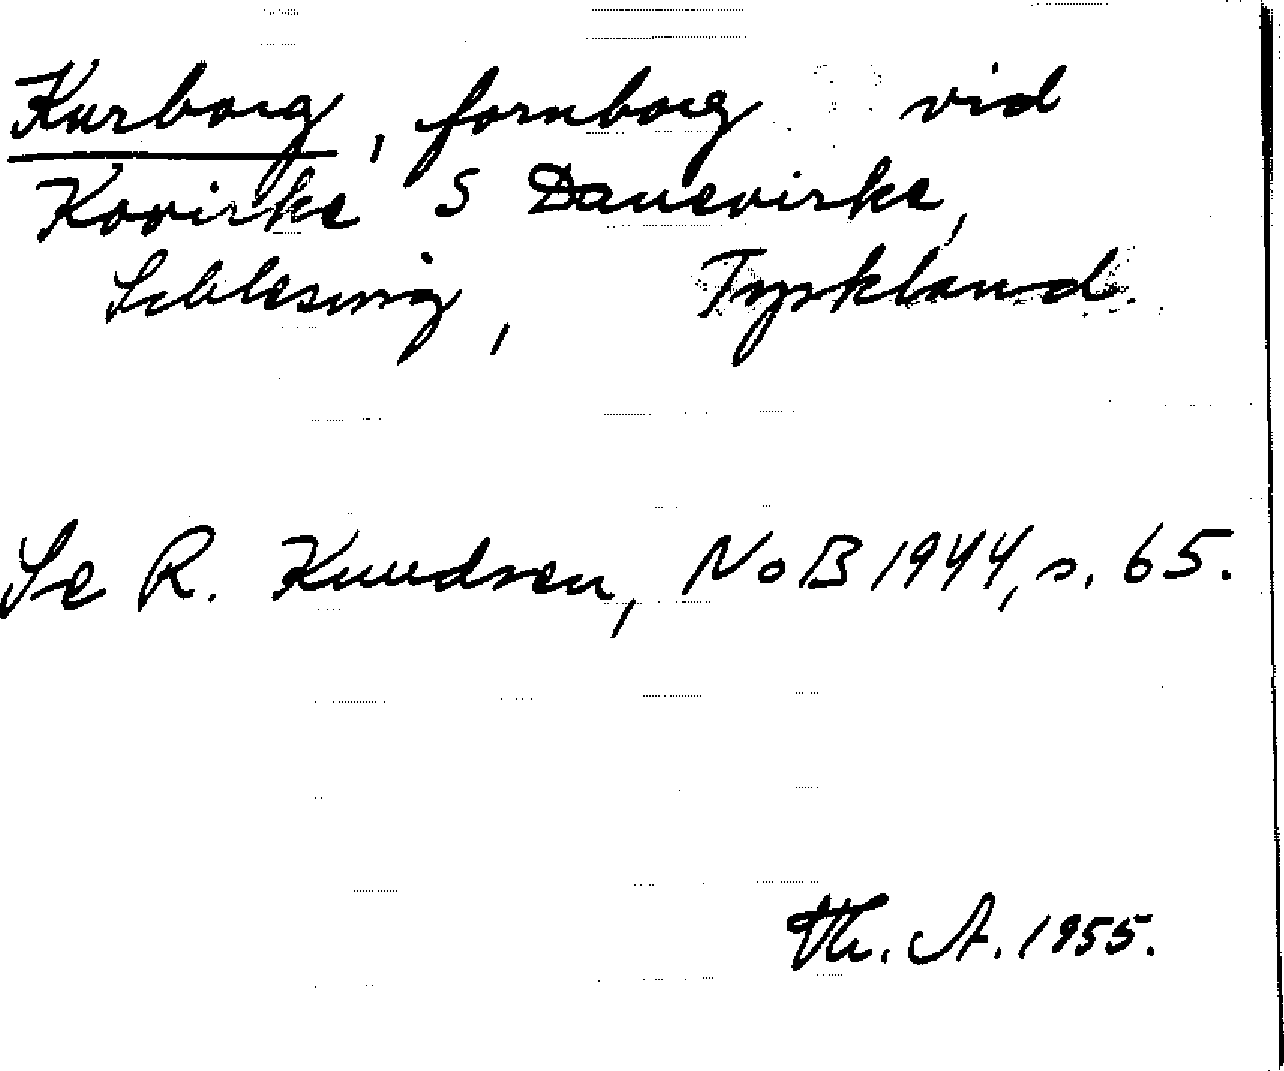 Kurborg, fornborg vid
Kovirke S Danevirke,
Schleswig, Tyskland.
Se R. Knudsen, NoB 1944, s. 65.
Th. A. 1955.